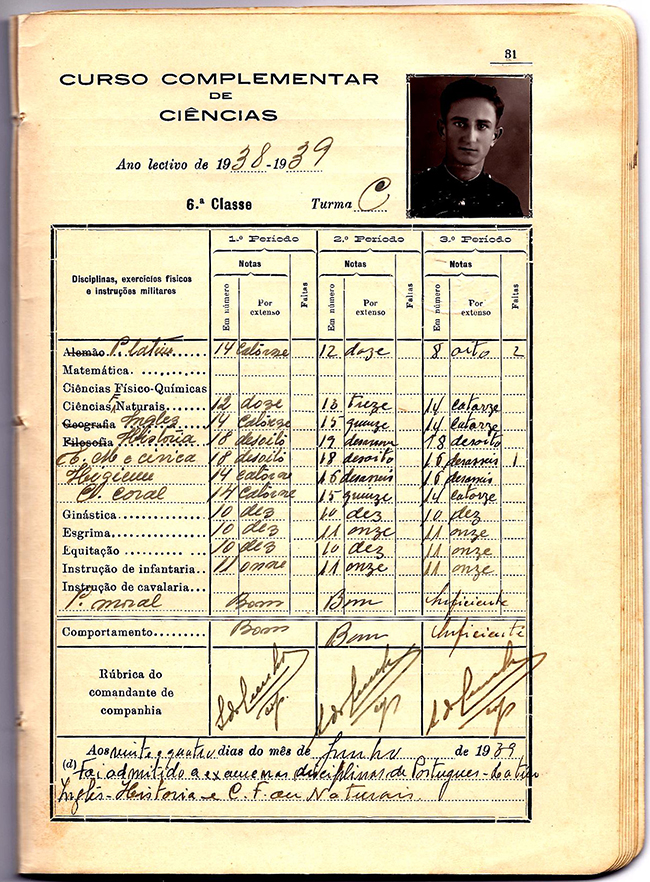 81
CURSO COMPLEMENTAR
DE
CIÊNCIAS
Ano lectivo de 1938-1939
6.ª Classe Turma C
Disciplinas, exercícios físicos e instruções militares
1.º Período 2.º Período 3.º Período
Notas Notas Notas
Em número Por extenso Faltas Em número Por extenso Faltas Em número Por extenso Faltas
Alemão P. latim 14 Catorze 12 doze 8 oito 2
Matemática
Ciências Físico-Químicas
Ciências F. Naturais 12 doze 13 treze 14 catorze
Geografia Inglez 14 Catorze 15 quinze 14 Catorze
Filosofia Historia 18 desoito 19 18 desoito
E. M e civica 18 desoito 18 desoito 16 1
Higiene 14 catorze 16 16
C. Coral 14 Catorze 15 quinze 14 catorze
Ginástica 10 dez 10 dez 10 dez
Esgrima 10 dez 11 onze 11 onze
Equitação 10 dez 10 dez 11 onze
Instrução de infantaria 11 onze 11 onze 11 onze
Instrução de cavalaria
P. moral Bom Bom Suficiente
Comportamento Bom Bom Suficiente
Rúbrica do comandante de companhia
Aos vinte e quatro dias do mês de Junho de 1939
(d) Foi admitido a exame nas disciplinas de Portugues-Latim
Inglês-Historia e C. F. ou Naturais.